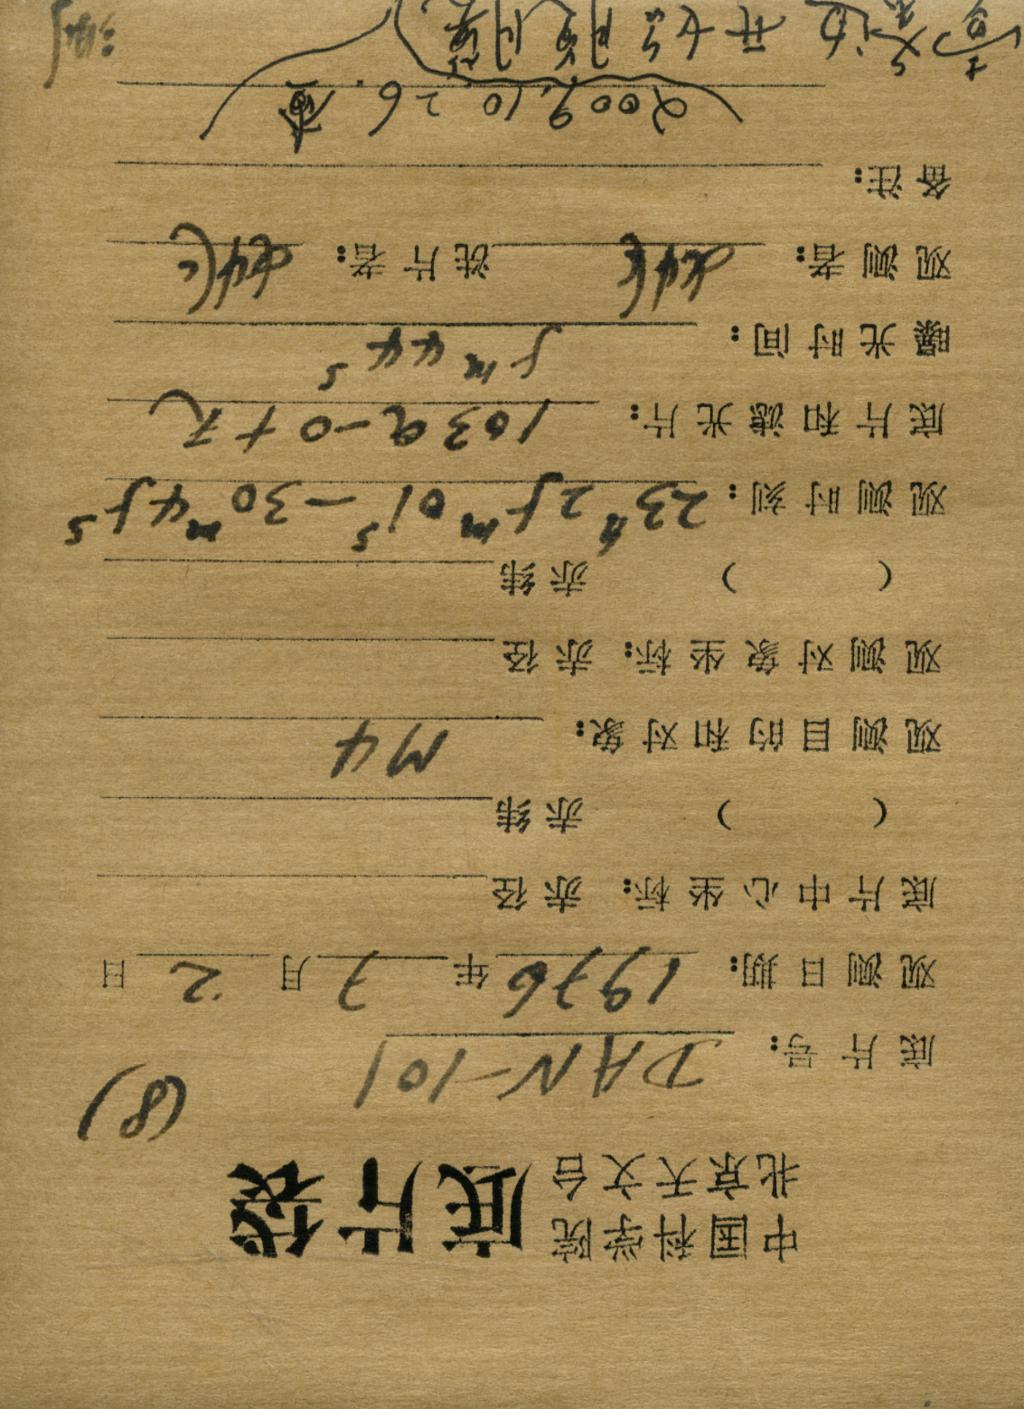 中国科学院
北京天文台 底片袋
(8)
底片号: DAN-101
观测日期: 1976年7月2日
底片中心坐标: 赤径
( ) 赤纬
观测目的和对象: M4
观测对象坐标: 赤径
( ) 赤纬
观测时刻: 23h25m01s-30m45s
底片和滤光片: 103a-0+无
曝光时间: 5m44s
观测者: 洗片者:
备注:
2009.10.26.查
边开始脱膜